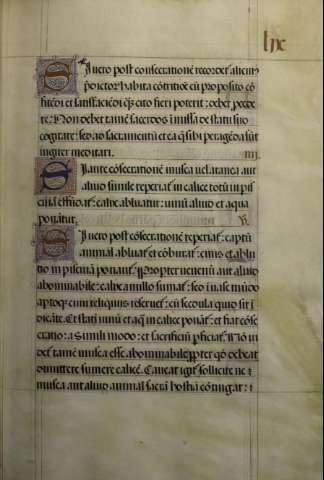 lix
Si vero post consecrationē recordet᷑ alicui᷒
p̄dictoꝝ habita cōtritiōe cū proposito cō
fitēdi et satisfaciēdi q̄ȝ cito fieri poterit: debet pcede
re. Non debet tamē sacerdos ī missa de statu suo
cogitare: sed ad sacramentū et ea q̄ sibi peragēda sūt
iugiter meditari.
Si ante cōsecrationē musca vel aranea aut
aliud simile reperiat᷑ in calice totū in pis
cinā effūdat᷑: calix abluat᷑: vinū aliud et aqua
ponāt᷑.
Si vero post cōsecrationē reperiat᷑: captū
animal abluat᷑ et cōburat᷑: cinis et ablu
tio in piscinā ponant᷑. Propter venenū aut aliud
abominabile: calix nullo sumat᷑: sed ī vas mūdū
aptoq̄ cum reliquiis reservet᷑: cū scedula quid sit ī
dicāte. Et statī vinū et aq̄ in calice ponāt᷑: et fiat cōse
cratio: a Simili modo: et sacrificiū p̄ficiat᷑. Nō vi
det᷑ tamē musca esse abominabile ꝓpter qd̄ debeat
omittere sumere calicē. Caveat igit᷑ sollicite ne
musca aut aliud animal sacrā hostiā cōtingat: